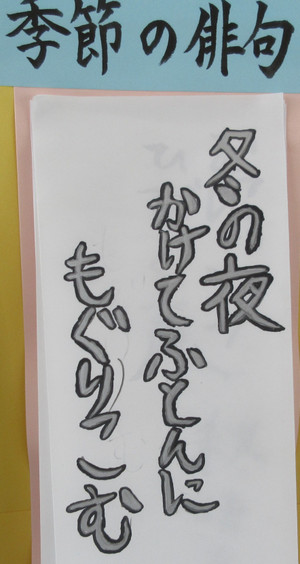 季節の俳句
冬の夜
かけてふとんに
もぐりっこむ